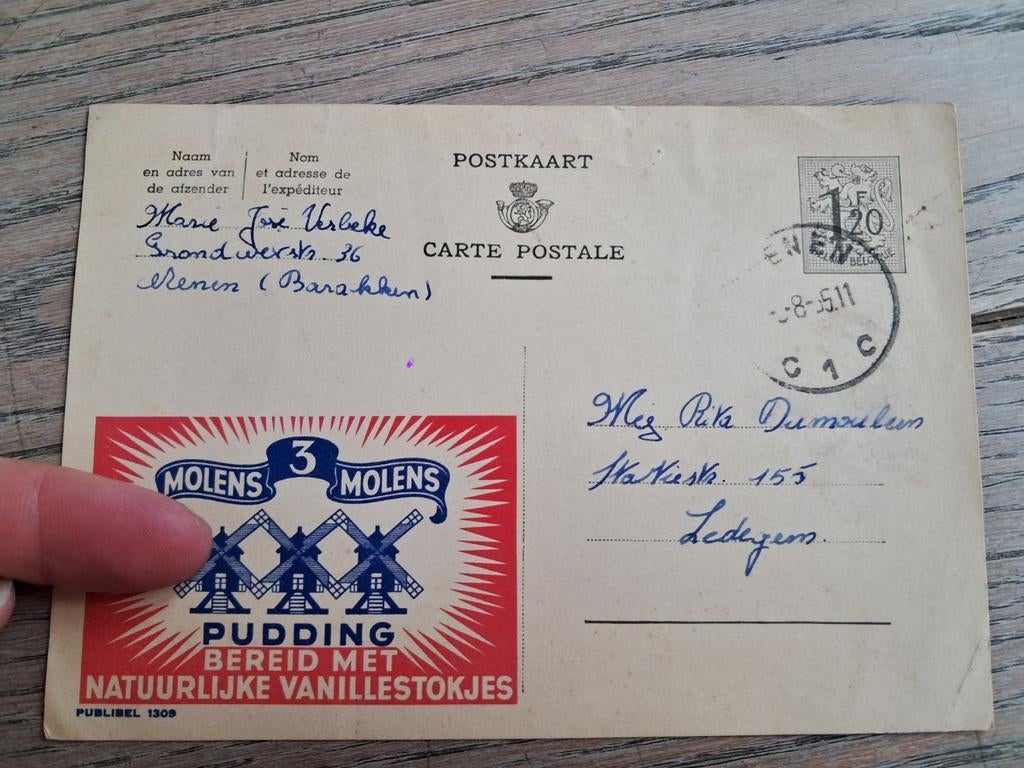 Naam
en adres van
de afzender
Nom
et adresse de
l'expéditeur
POSTKAART
CARTE POSTALE
1 F. 20
BELGIQUE
ENEN
8-55.11
C 1 C
Marie José Verbeke
36
Menen (Barakken)
Mej Rita Dumoulein
Statiestr. 155
Ledegem.
MOLENS 3 MOLENS
PUDDING
BEREID MET
NATUURLIJKE VANILLESTOKJES
PUBLIBEL 1309